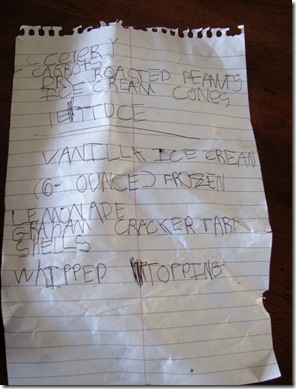 CELERY
- CARROTS
DRY ROASTED PEANUTS
ICE CREAM CONES
LETTUCE
VANILLA ICE CREAM
(6-OUNCE) FROZEN
LEMONADE
GRAHAM CRACKER TART
SHELLS
WHIPPED TOPPING